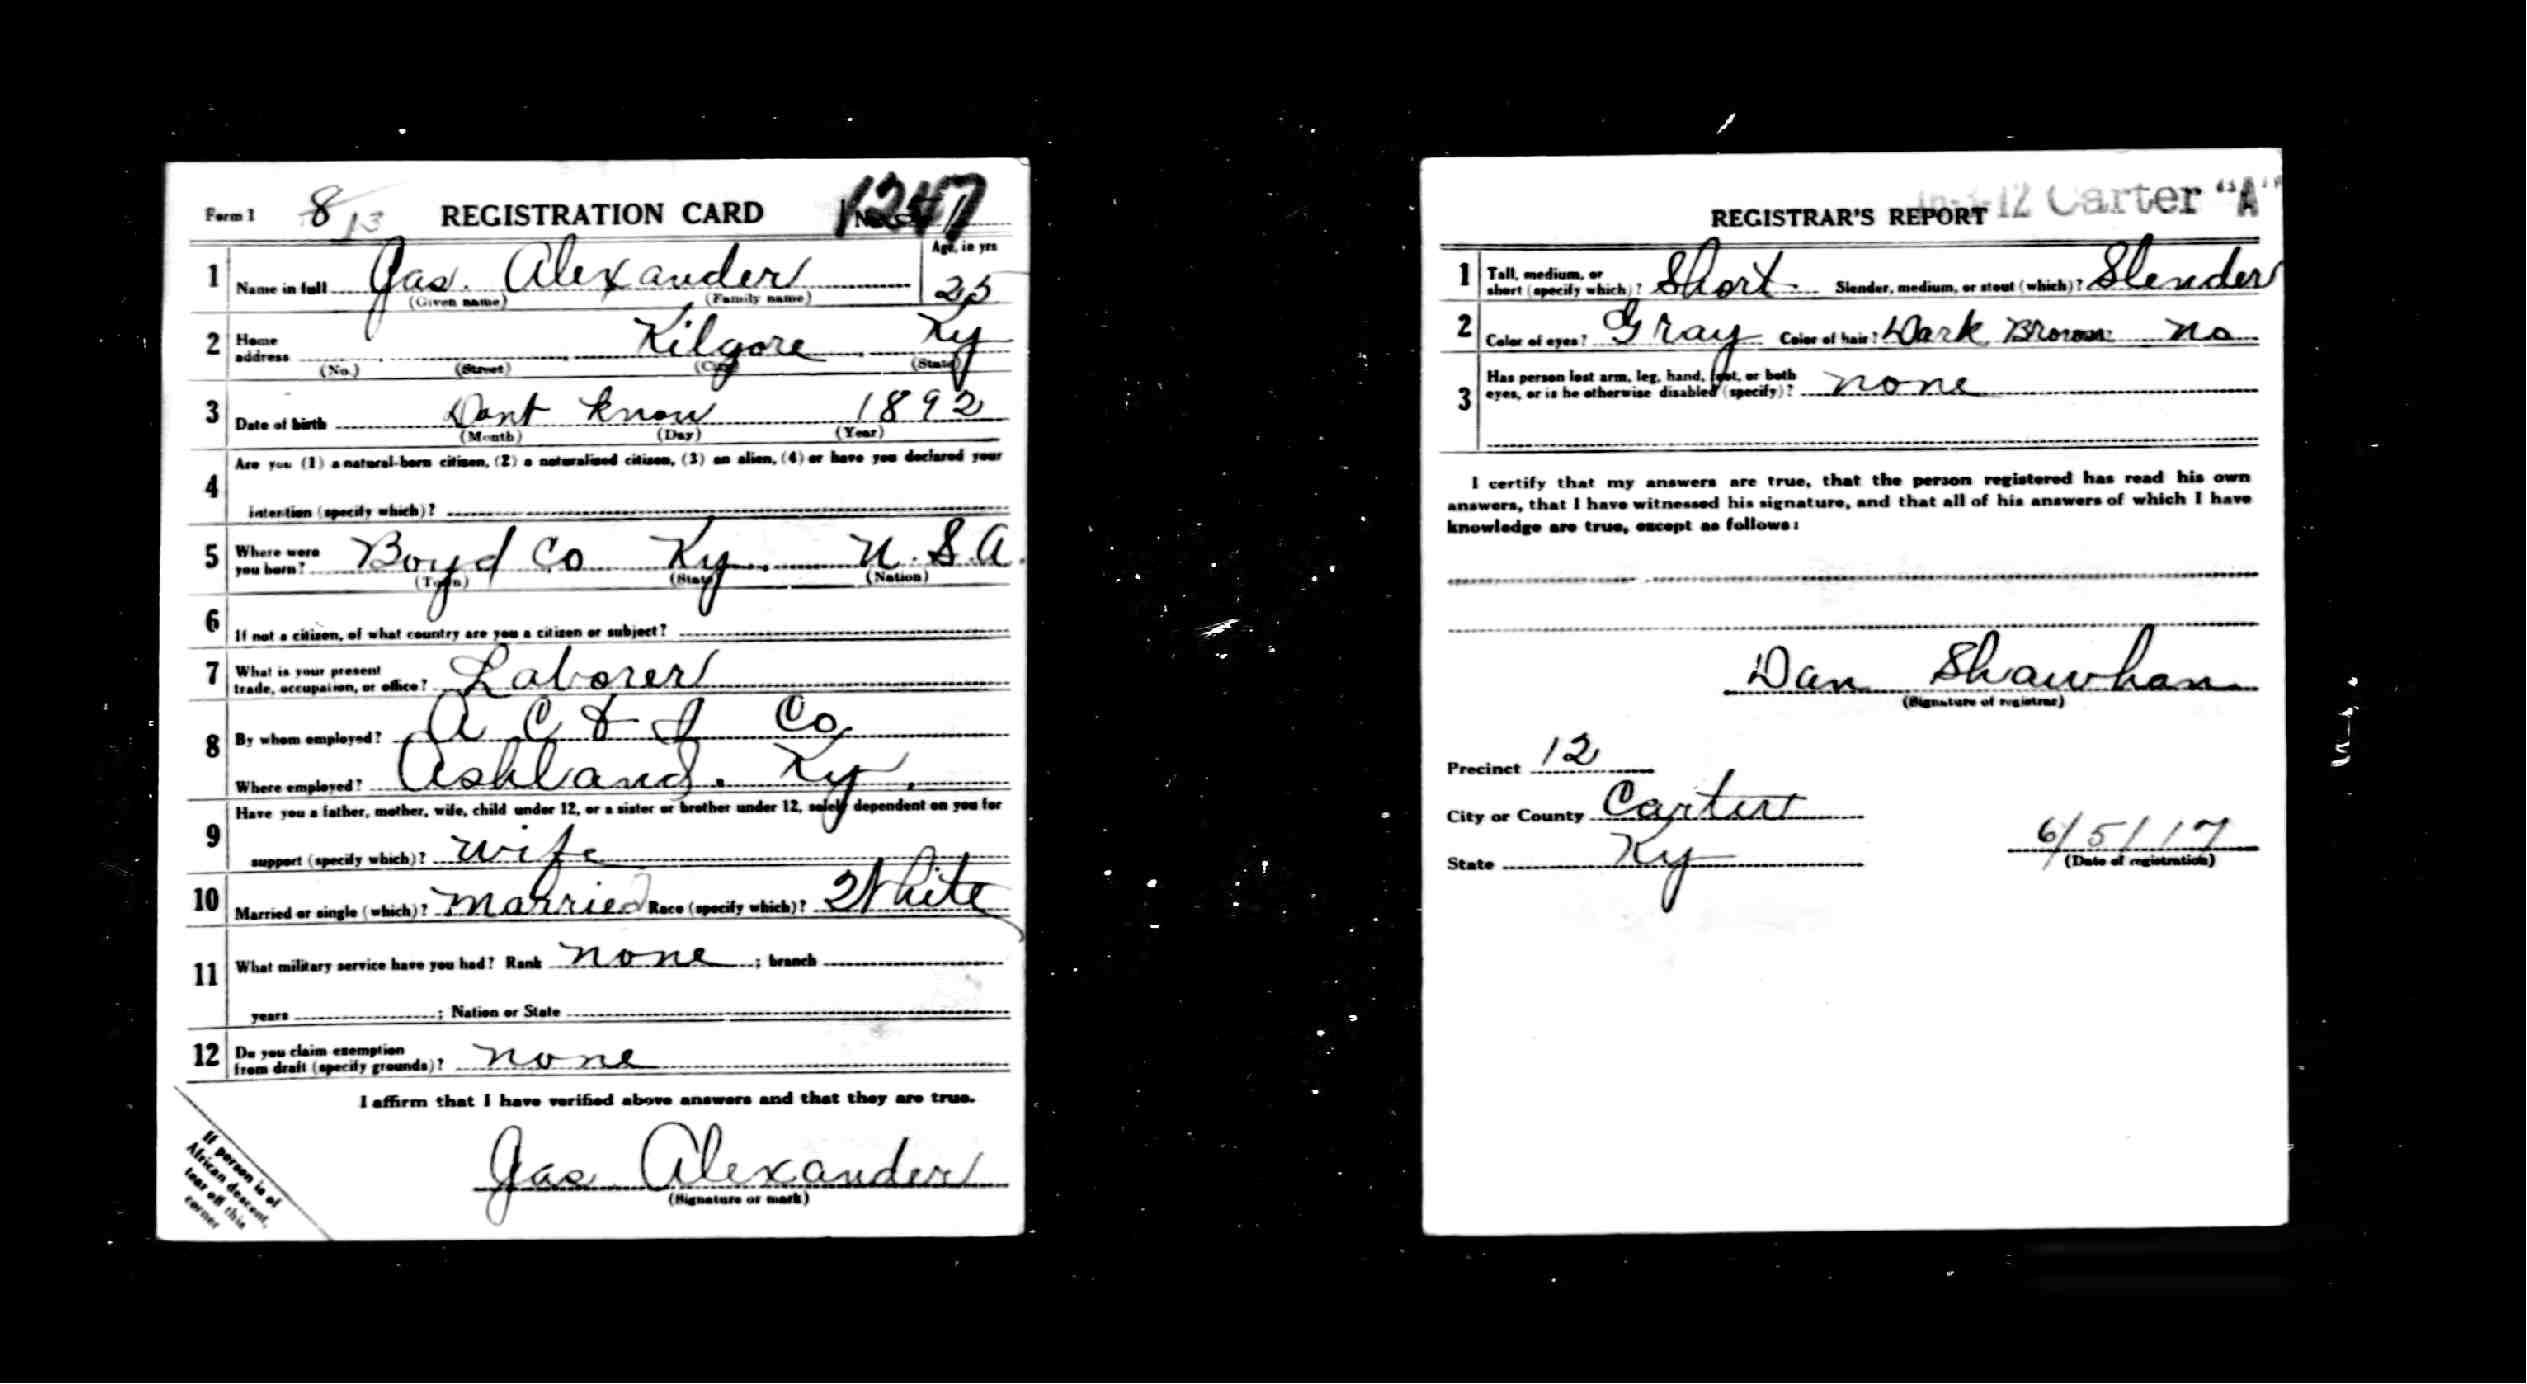 Form 1 8/13 REGISTRATION CARD
1 Name in full Jas. Alexander Age, in yrs 25
(Given name) (Family name)
2 Home address Kilgore Ky
(No.) (Street) (City) (State)
3 Date of birth Dont know 1892
(Month) (Day) (Year)
4 Are you (1) a natural-born citizen, (2) a naturalized citizen, (3) an alien, (4) or have you declared your
intention (specify which)?
5 Where were you born? Boyd Co Ky. U.S.A.
(Town) (State) (Nation)
6 If not a citizen, of what country are you a citizen or subject?
7 What is your present trade, occupation, or office? Laborer
8 By whom employed? A C & I Co
Where employed? Ashland. Ky.
9 Have you a father, mother, wife, child under 12, or a sister or brother under 12, solely dependent on you for
support (specify which)? wife
10 Married or single (which)? married Race (specify which)? White
11 What military service have you had? Rank none ; branch
years ; Nation or State
12 Do you claim exemption from draft (specify grounds)? none
I affirm that I have verified above answers and that they are true.
Jas Alexander
(Signature or mark)
If person is of
African descent,
tear off this
corner
12 Carter "A"
REGISTRAR'S REPORT
1 Tall, medium, or short (specify which)? Short Slender, medium, or stout (which)? Slender
2 Color of eyes? Gray Color of hair? Dark Brown No
3 Has person lost arm, leg, hand, foot, or both eyes, or is he otherwise disabled (specify)? none
I certify that my answers are true, that the person registered has read his own
answers, that I have witnessed his signature, and that all of his answers of which I have
knowledge are true, except as follows:
Dan Shawhan
(Signature of registrar)
Precinct 12
City or County Carter
State Ky 6/5/17
(Date of registration)